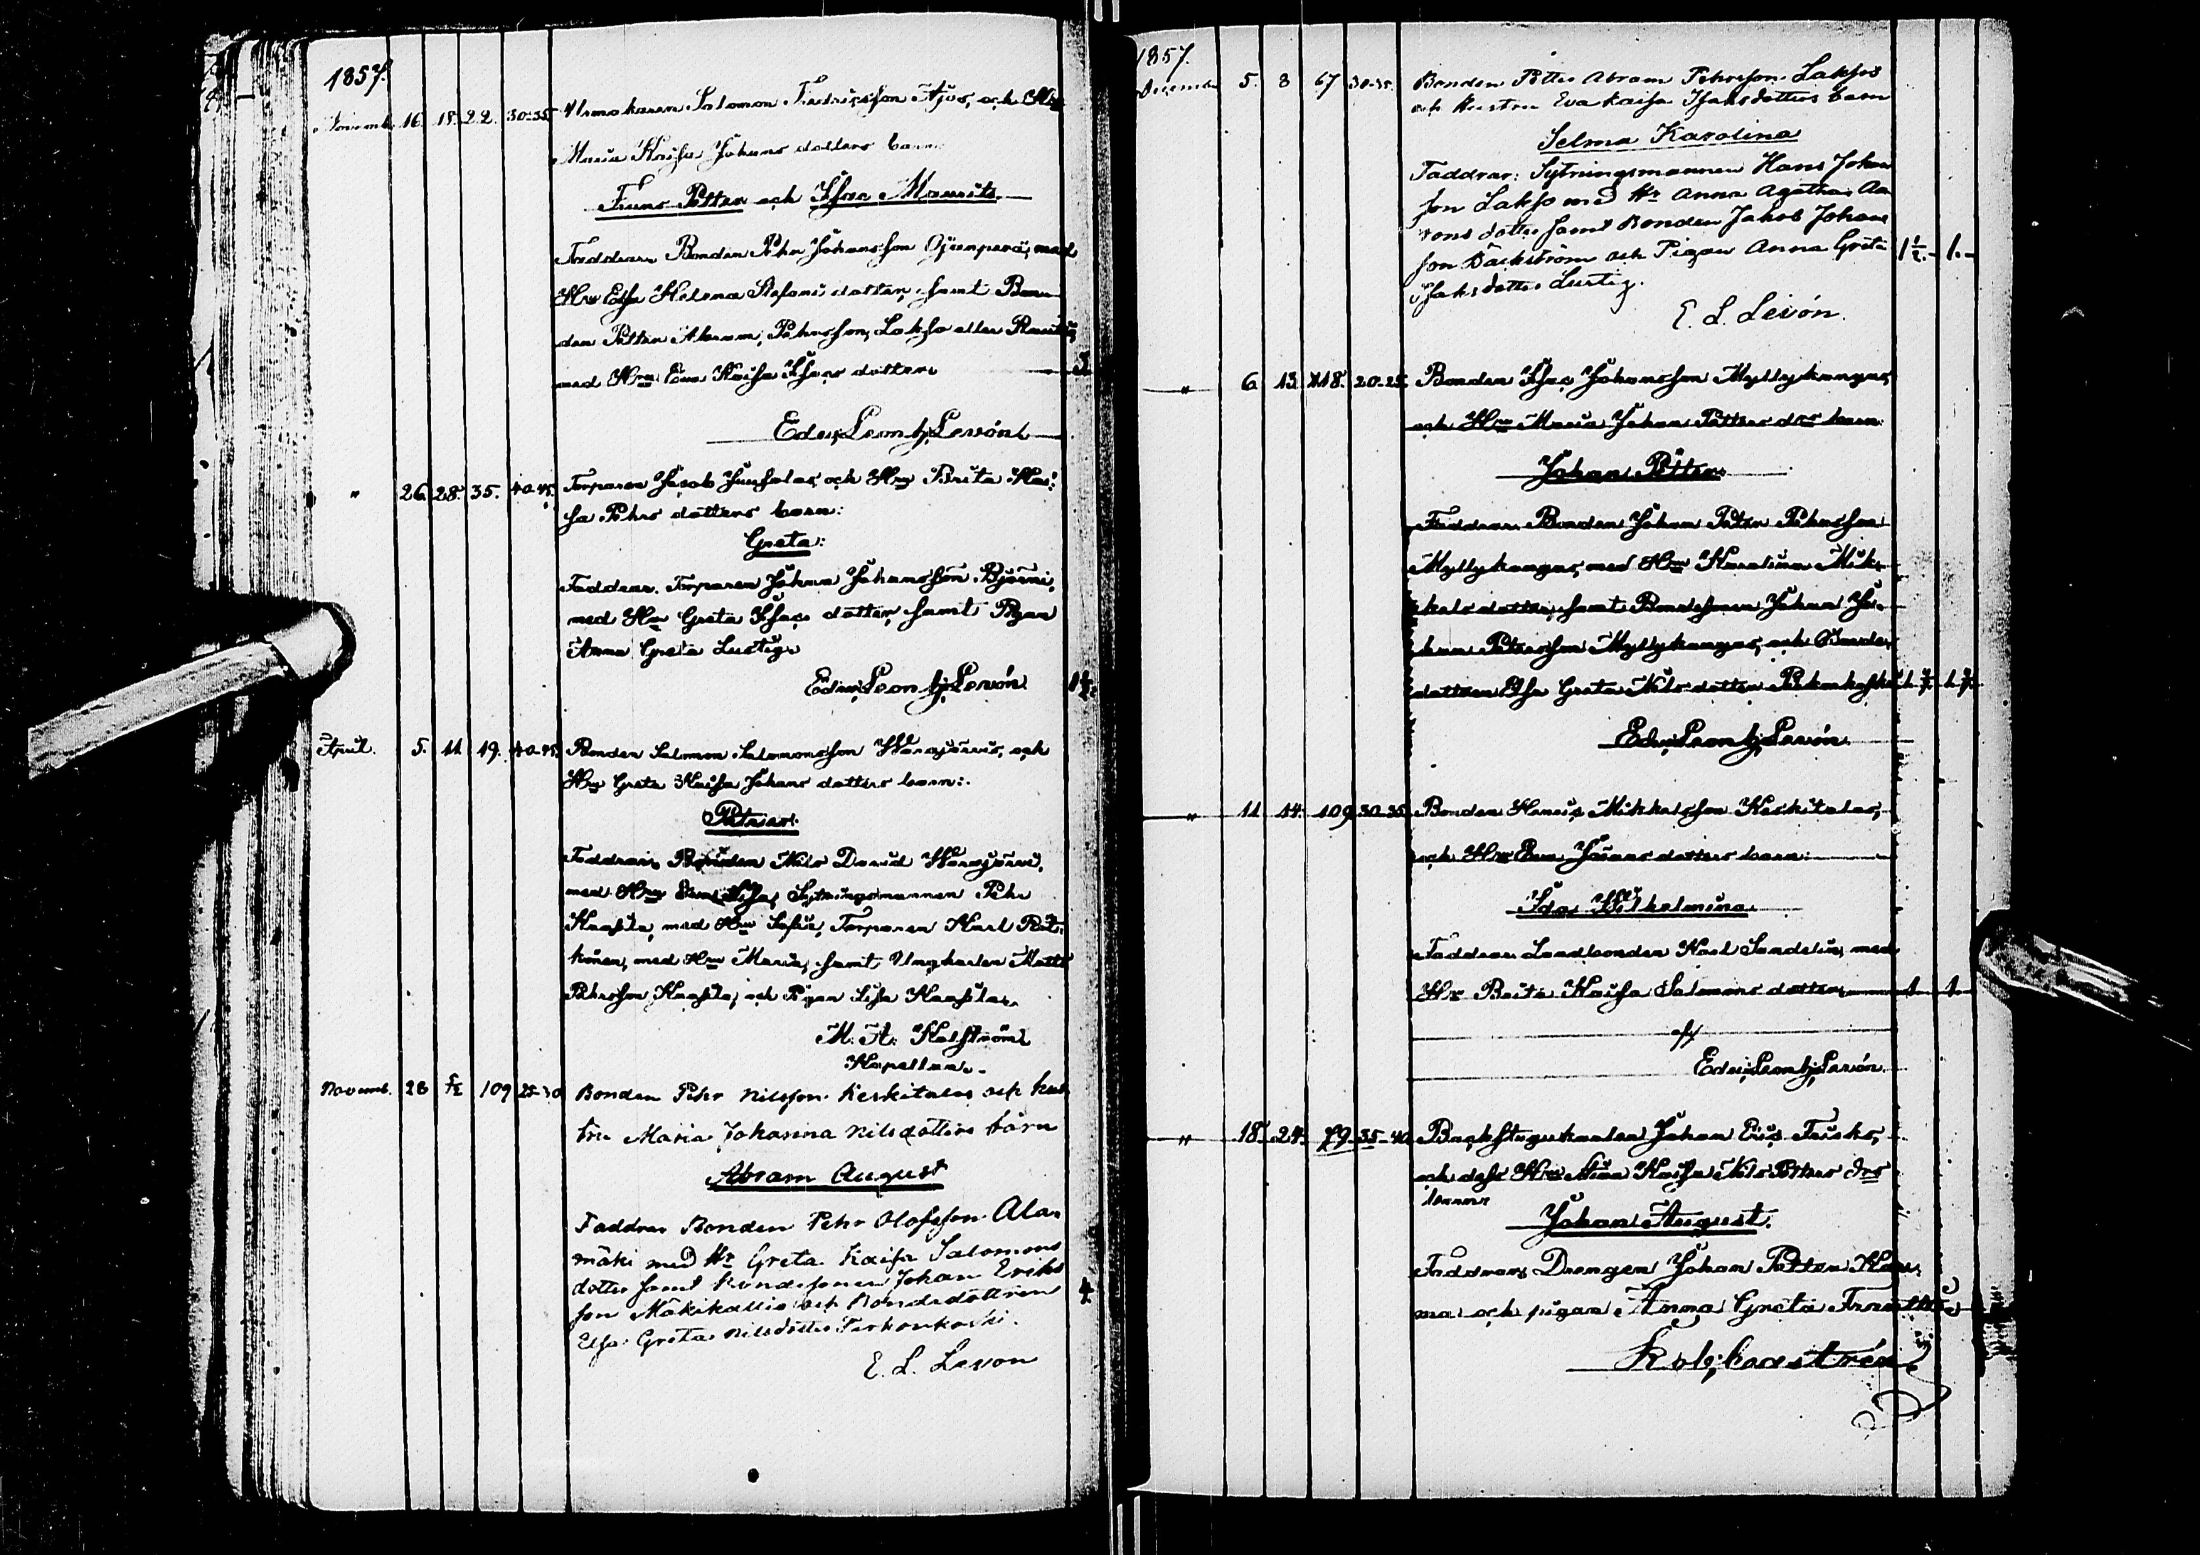 1857.
Novemb. 16. 18. 22. 30-35. Urmakaren Salomon Fredricsson Ajos, och Hu
Maria Kaisa Johans dotters barn
Frans Petter och Isac Maurits
Faddrar Bonden Pehr Johansson med
Hru Elsa Helena Stefans dotter, samt Bon
den Petter Abram Pehrsson, Lakso eller
med Hru Eva Kaisa Isacs dotter
Edv. Leonh. Levón
" 26. 28. 35. 40-45. Torparen Jacob och Hru Brita Kai
sa Pehrs dotters barn:
Greta:
Faddrar. Torparen Johan Johansson Björni,
med Hru Greta Isacs dotter, samt Pigan
Anna Greta Lustig
Edv. Leonh. Levón 1½
April. 5. 11. 19. 40-45. Bonden Salomon Salomonsson och
Hru Greta Kaisa Johans dotters barn:
Petter.
Faddrar, Bonden Nils David
med Hru Sytningsmannen Pehr
Kaakko, med Hru Sofia, Torparen Karl
med Hru Maria, samt Ungkarlen Matts
Pehrsson och Pigan Lisa
M. A.
Kapellan.
Novemb. 28 109 25-30 Bonden Pehr Nilsson Keskitalo och hus
tru Maria Johanna Nilsdotters barn
Abram August
Faddrar Bonden Pehr Olofsson Ala
mäki med Hr Greta Kaisa Salomons
dotter samt Bondesonen Johan Eriks
son Mäkikallio och Bondedottren
Elsa Greta Nilsdotter
E. L. Levon
1857.
Decemb. 5. 8 67 30-35. Bonden Petter Abram Pehrsson Lakso
och Hustru Eva Kaisa Isaksdotters barn
Selma Karolina
Faddrar: Sytningsmannen Hans Johan
son Lakso med Hr Anna Agatha Aa
rons dotter samt Bonden Jakob Johans
son Bäckström och Pigan Anna Greta 1½.- 1.-
Isaks dotter Lustig.
E. L. Levón.
" 6. 13. 118. 20-25. Bonden Isac Johansson Myllykangas,
och Hru Maria Johan Petters drs barn
Johan Petter
Faddrar Bonden Johan Petter Pehrsson
Myllykangas, med Hru Karolina Mik-
kels dotter, samt Bondesonen Johan Jo-
han Pettersson Myllykangas, och Bonde-
dottren Elsa Greta Nils dotter
Edv. Leonh. Levón.
" 11. 14. 109 30-35 Bonden Henric Mikkelsson Keskitalo,
och Hru Eva Johans dotters barn:
Ida Wilhelmina
Faddrar Landbonden Karl Sandelin, med
Hr Brita Kaisa Salomons dotter 1. 1.
Edv. Leonh. Levón.
" 18. 24. 79. 35-40 Backstugukarlen Johan Eric Frisk,
och dess Hru Kaisa Nils Petters drs
barn
Johan August.
Faddrar, Drengen Johan Petter
ma och pigan Anna Greta